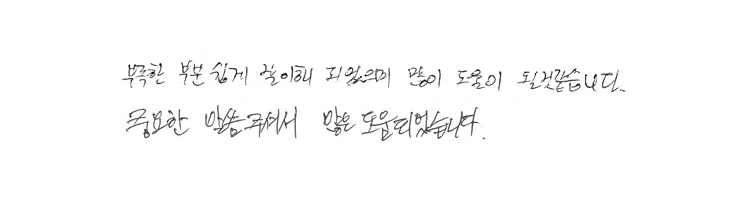 부족한 부분 쉽게 잘 이해 되었으며 많이 도움이 될것같습니다.
중요한 말씀주셔서 많은 도움되었습니다.